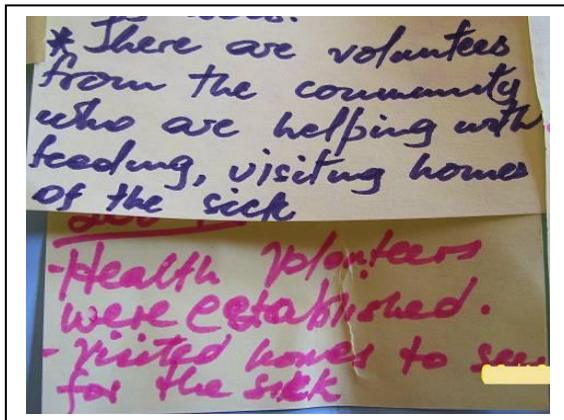 * There are voluntees
from the community
who are helping with
feeding, visiting homes
of the sick
- Health Volonteers
were established.
- Visited homes to see
for the sick